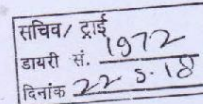 सचिव/ ट्राई
डायरी सं. 1972
दिनांक 22.5.18